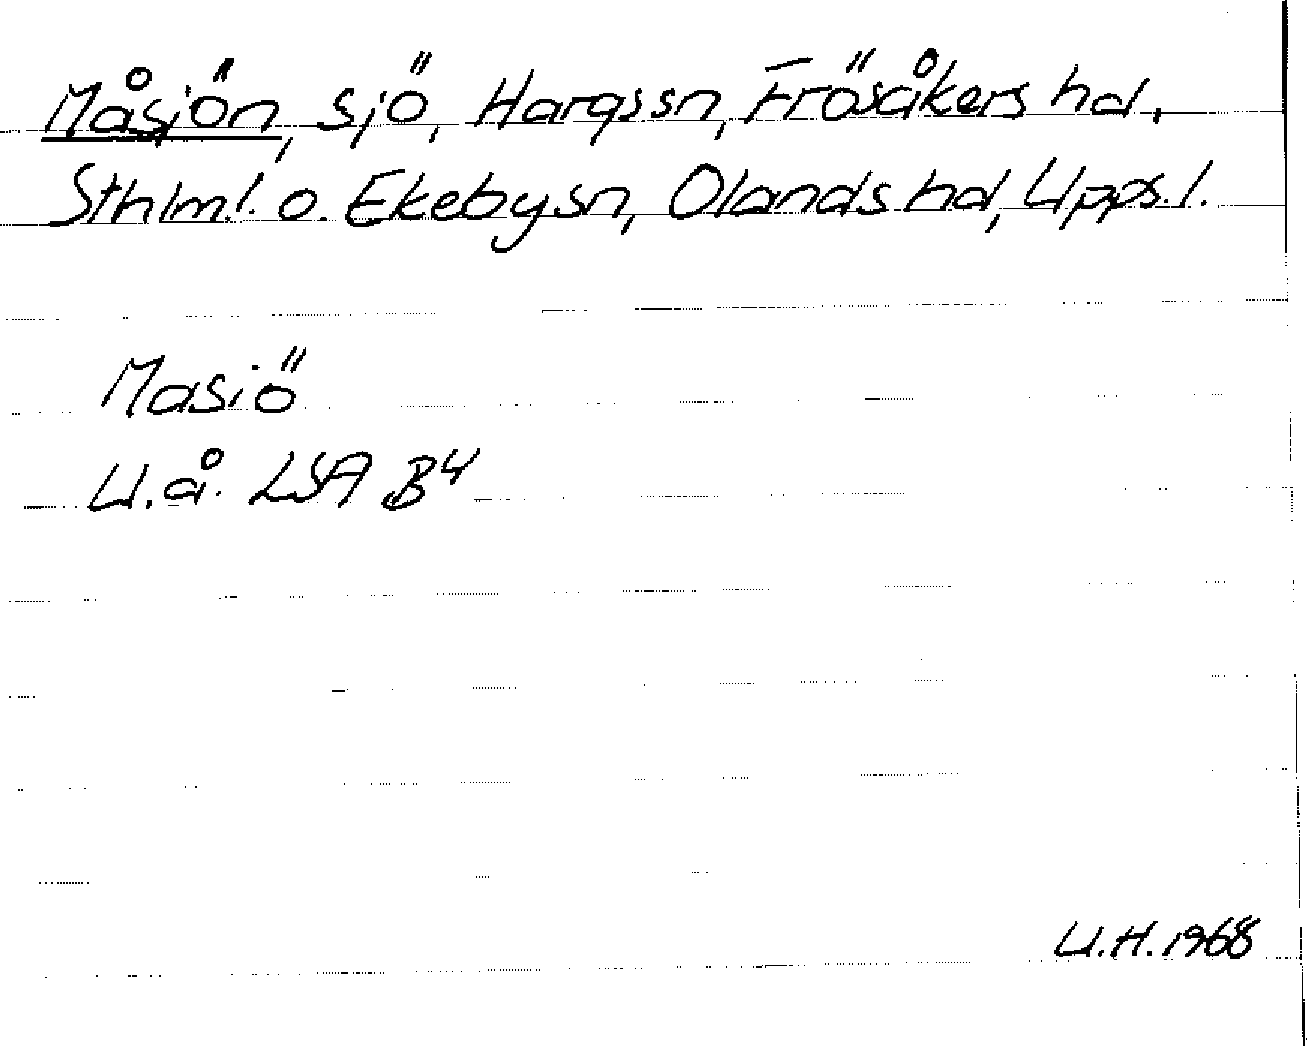 Måsjön, sjö, Hargs sn, Frösåkers hd,
Sthlm.l. o. Ekeby sn, Olands hd, Upps.l.
Masiö
U.å. LSA B4
U.H. 1968